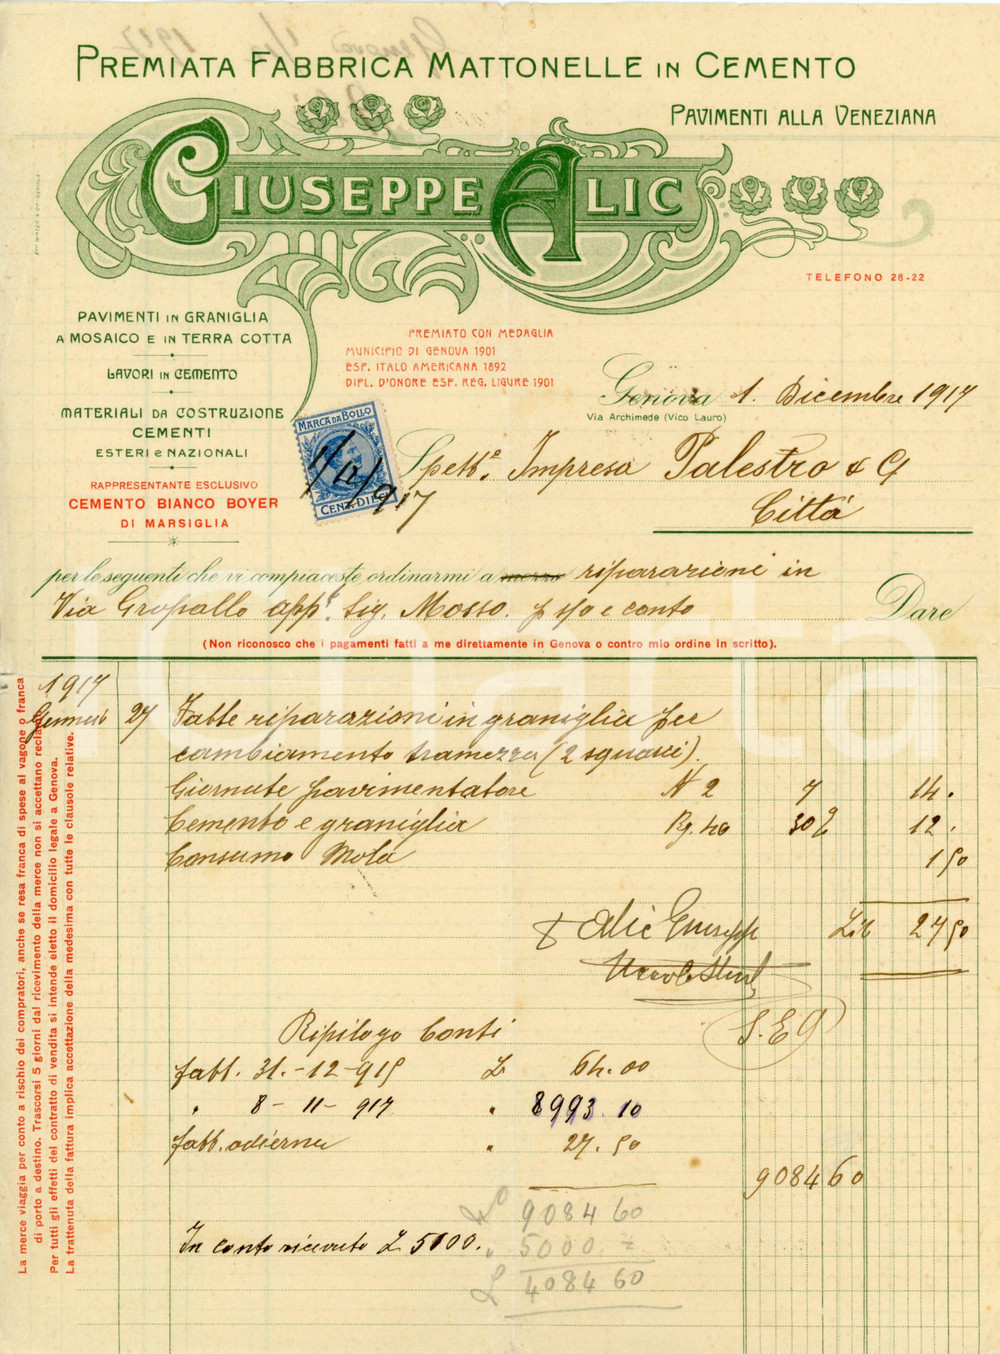 PREMIATA FABBRICA MATTONELLE IN CEMENTO
PAVIMENTI ALLA VENEZIANA
GIUSEPPE ALIC
TELEFONO 28-22
PAVIMENTI IN GRANIGLIA
A MOSAICO E IN TERRA COTTA
LAVORI IN CEMENTO
MATERIALI DA COSTRUZIONE
CEMENTI
ESTERI e NAZIONALI
RAPPRESENTANTE ESCLUSIVO
CEMENTO BIANCO BOYER
DI MARSIGLIA
PREMIATO CON MEDAGLIA
MUNICIPIO DI GENOVA 1901
ESP. ITALO AMERICANA 1892
DIPL. D'ONORE ESP. REG. LIGURE 1901
Genova 1. Dicembre 1917
Via Archimede (Vico Lauro)
MARCA DA BOLLO
CENT. DIECI
1/12/917
Spett.e Impresa Palestro & C.
Città
per le seguenti che vi compiaceste ordinarmi a mezzo riparazioni in
Via Gropallo app.to Sig. Mosso. p s/o e conto
Dare
(Non riconosco che i pagamenti fatti a me direttamente in Genova o contro mio ordine in scritto).
1917
Gennaio 27 Fatte riparazioni in graniglia per
cambiamento tramezza (2 squarci).
Giornate pavimentatore N 2 7 14.
Cemento e graniglia Kg. 40 30 % 12.
Consumo Mola 1 50
Alic Giuseppe Lit 27 50
S. E &
Ripilogo Conti
fatt. 31.-12-915 L 64.00
" 8-11-917 " 8993.10
fatt. odierna " 27.50
9084 60
9084 60
In conto ricevuto L 5000. " 5000. =
L 4084 60
La merce viaggia per conto a rischio dei compratori, anche se resa franca di spese al vagone o franca
di porto a destino. Trascorsi 5 giorni dal ricevimento della merce non si accettano reclami.
Per tutti gli effetti del contratto di vendita si intende eletto il domicilio legale a Genova.
La trattenuta della fattura implica accettazione della medesima con tutte le clausole relative.